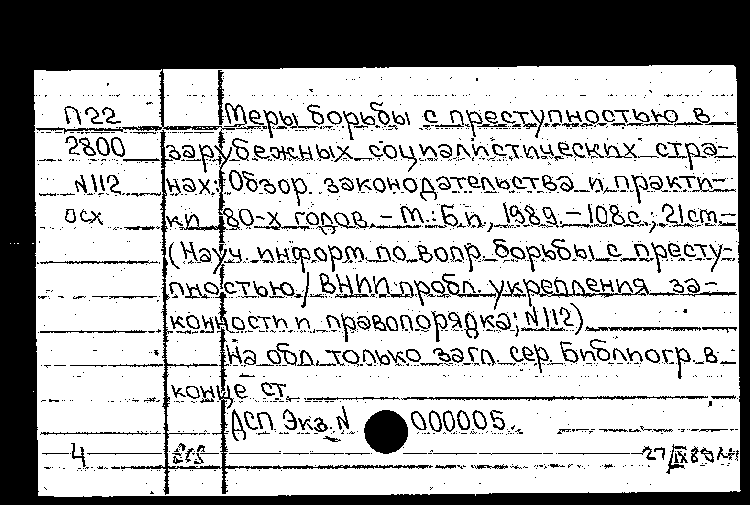 П22 Меры борьбы с преступностью в
2800 зарубежных социалистических стра-
N112 нах: Обзор законодательства и практи-
осх ки 80-х годов. – М.: Б.и., 1989. – 108с.; 21см. –
(Науч. информ по вопр. борьбы с престу-
пностью / ВНИИ пробл. укрепления за-
конности и правопорядка; N112)
На обл. только загл. сер. Библиогр. в
конце ст.
ДСП Экз. N 000005.
4 27/IX 89